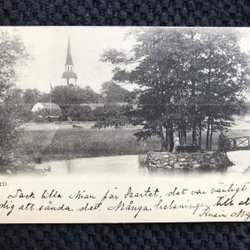 ED.
Tack lilla Mian för kortet, det var vänligt
dig att sända det. Många helsningar